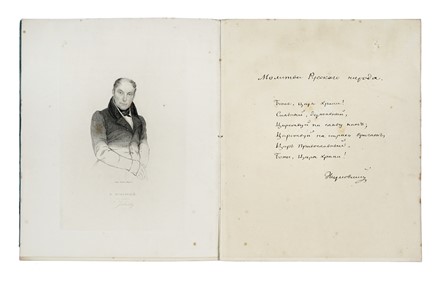 Молитва Русского народа.
Боже, Царя храни!
Сильный, Державный,
Царствуй на славу намъ;
Царствуй на страхъ врагамъ,
Царь Православный,
Боже, Царя храни!
Жуковскій